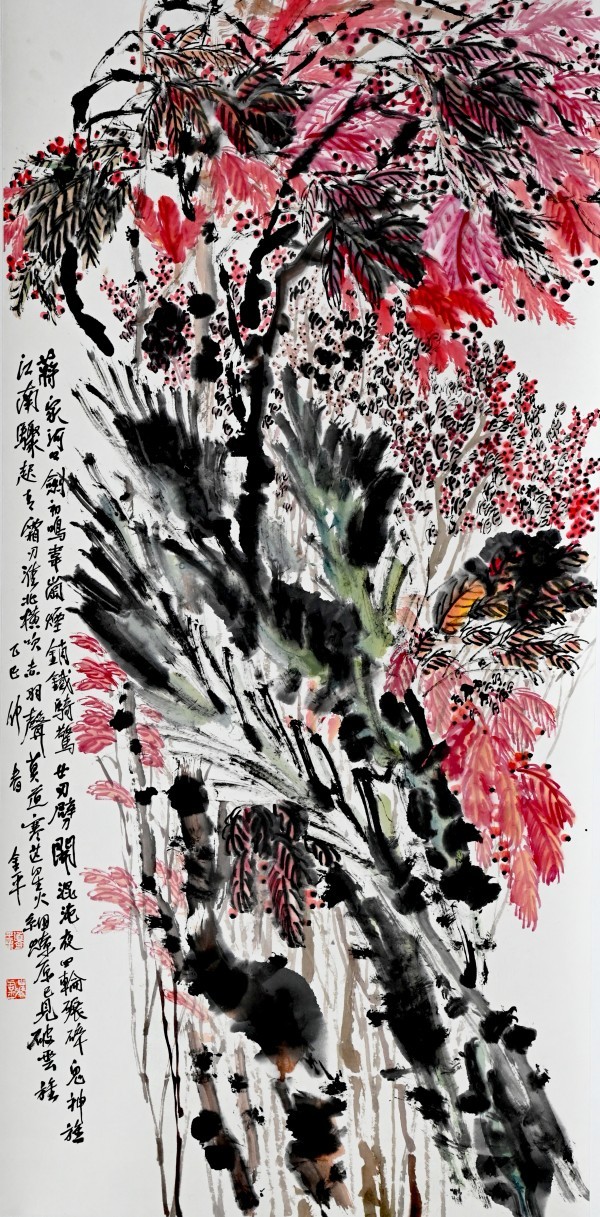 蔣家河口劍初鳴韋崗煙銷鐵騎驚廿刃劈開混沌夜四輪碾碎鬼神旌
江南驟起青霜刃淮北橫吹赤羽聲莫道寒芒星火細燎原已見破雲旌
乙巳仲春金平